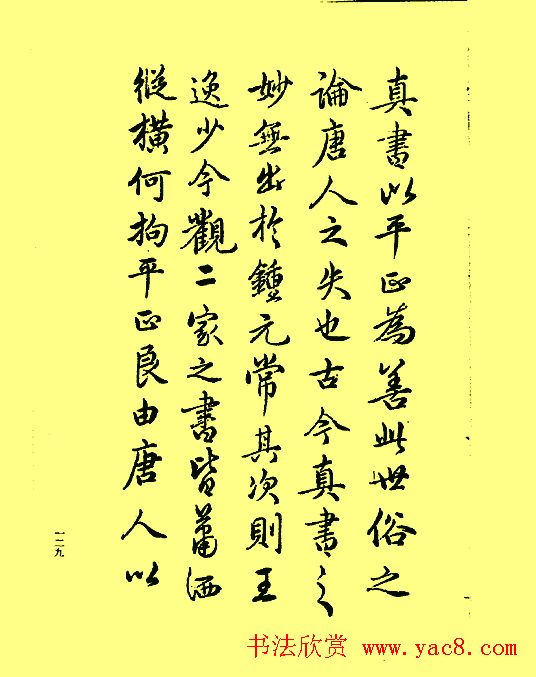 真書以平正為善此世俗之
論唐人之失也古今真書之
妙無出於鍾元常其次則王
逸少今觀二家之書皆蕭洒
縱橫何拘平正良由唐人以
一二九
书法欣赏 www.yac8.com